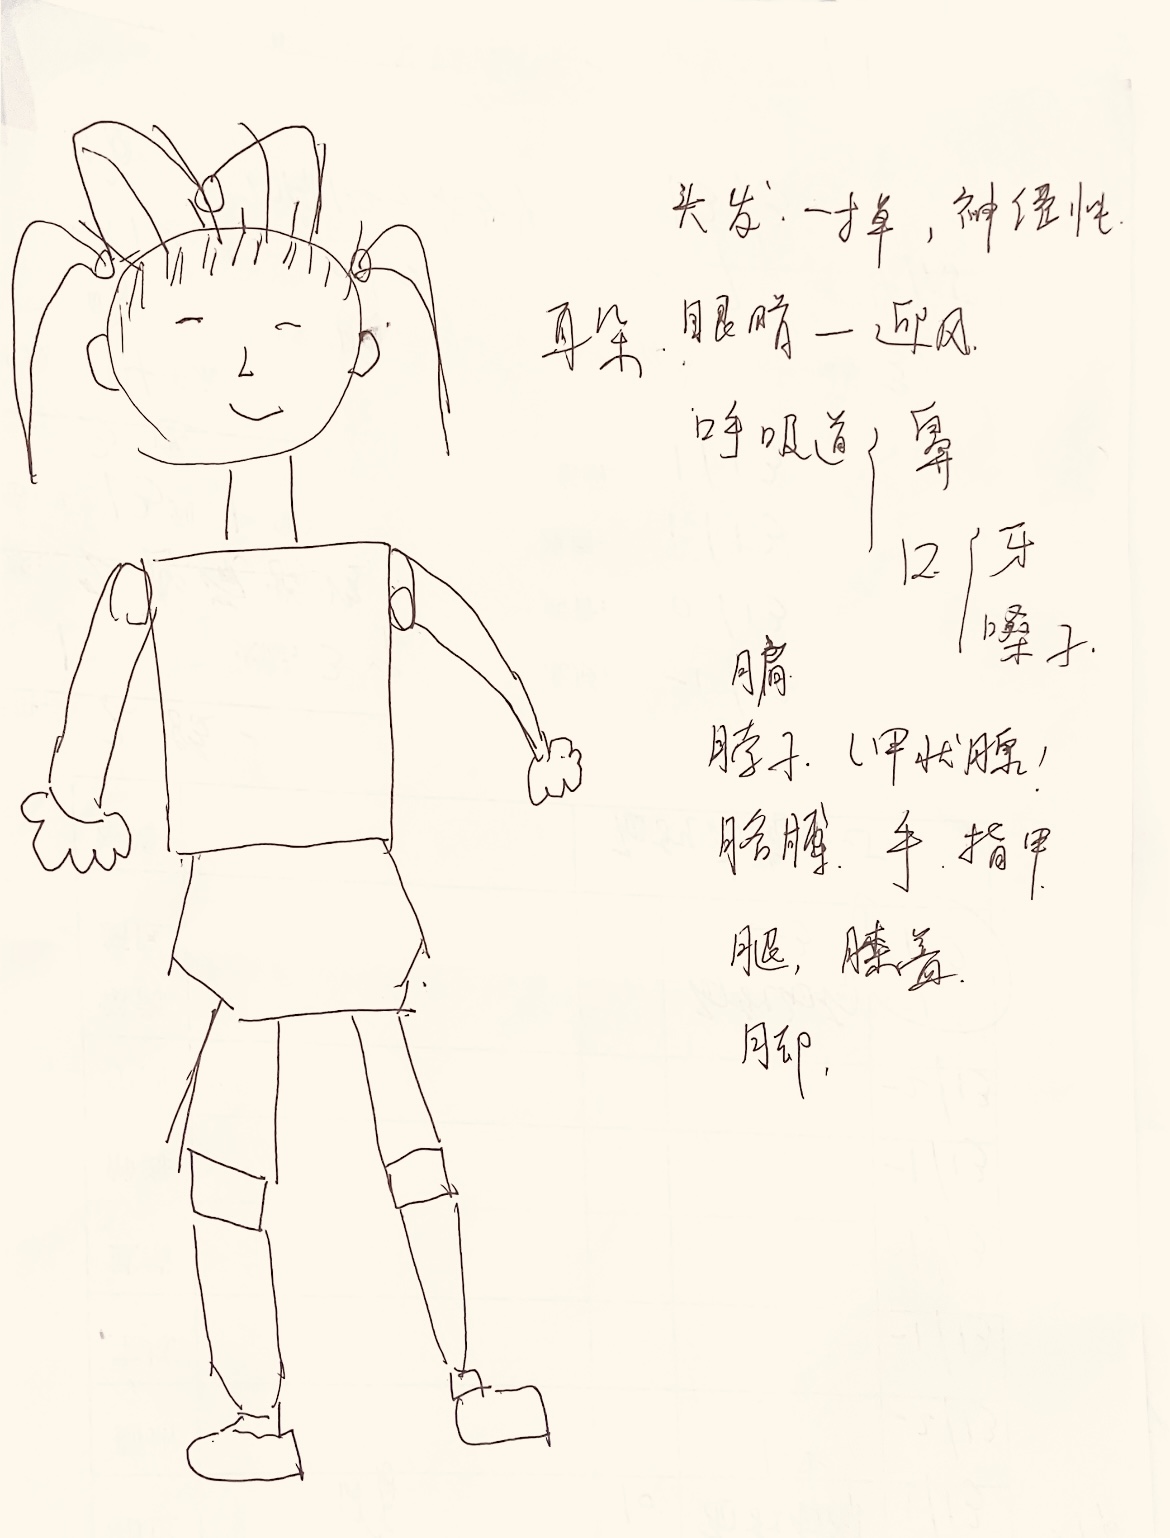 头发. 一才草，神经性.
耳朵. 眼睛 — 迎风.
呼吸道{ 鼻
口{ 牙
嗓子.
脖子.（甲状腺）
胳膊. 手. 指甲.
腿，膝盖.
脚.